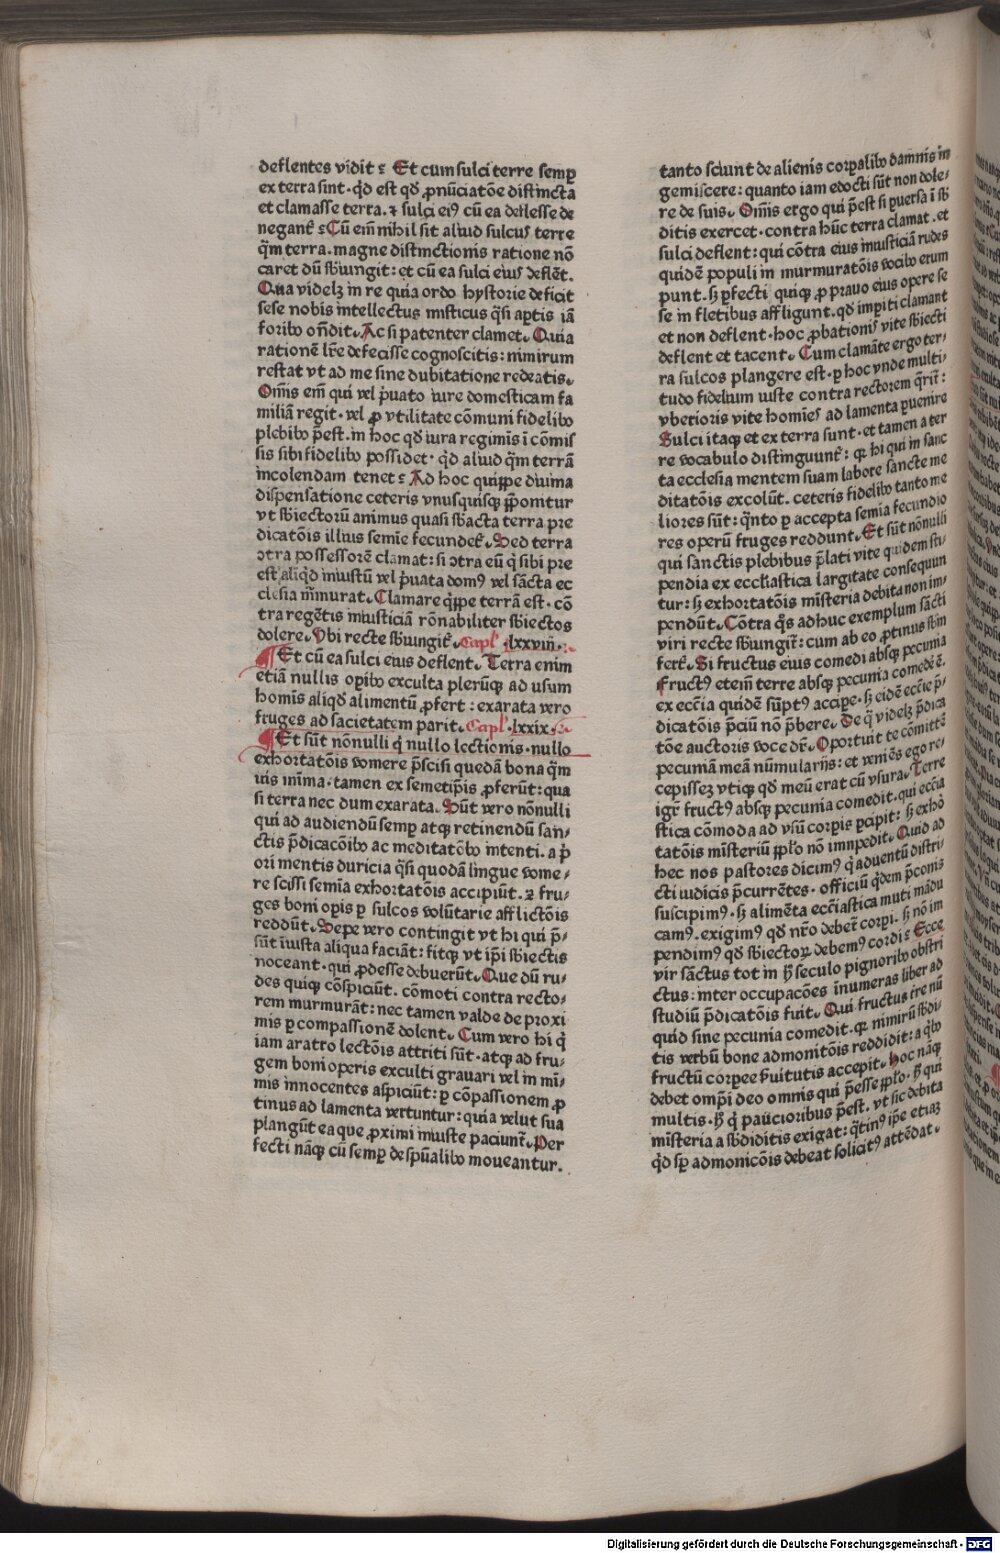 deflentes vidit ⁊ Et cum sulci terre semꝑ
ex terra sint · qd̓ est qd̓ ꝓnūciatōe distincta
et clamasse terra. ⁊ sulci eiꝰ cū ea deflesse de
negant᷑ ⁊ Cū em̄ nihil sit aliud sulcus terre
q̄m terra. magne distinctionis ratione nō
caret dū sb̓iungit: et cū ea sulci eius deflēt.
Qua videlꝫ in re quia ordo hystorie deficit
sese nobis intellectus misticus q̄si aꝑtis iā
foribꝰ on̄dit. Ac si patenter clamet. Quia
rationē lr̄e defecisse cognoscitis: nimirum
restat vt ad me sine dubitatione redeatis.
Om̄is em̄ qui vel p̓uato iure domesticam fa
miliā regit · vel ꝓ vtilitate cōmuni fidelibꝰ
plebibꝰ p̄est. in hoc qd̓ iura regimīs ī cōmis
sis sibi fidelibꝰ possidet · qd̓ aliud q̄m terrā
incolendam tenet ⁊ Ad hoc quippe diuina
dispensatione ceteris vnusquisqꝫ p̄ponitur
vt sb̓iectorū animus quasi sb̓acta terra pre
dicatōis illius semīe fecundet᷑. Sed terra
ↄtra possessorē clamat: si ↄtra eū q̓ sibi pre
est aliqd̓ iniustū vel p̓uata domꝰ vel sācta ec
clesia m̄murat. Clamare q̓ppe terrā est · cō
tra regētis iniusticiā rōnabiliter sb̓iectos
dolere. Vbi recte sb̓iungit᷑. Capl̓. lxxviii.
Et cū ea sulci eius deflent. Terra enim
etiā nullis oꝑibꝰ exculta plerūqꝫ ad usum
homīs aliqd̓ alimentū ꝓfert: exarata vero
fruges ad sacietatem parit. Capl̓. lxxix.
Et sūt nōnulli q̓ nullo lectionis · nullo
exhortatōis vomere p̄scisi quedā bona q̄m
uis mīma · tamen ex semetip̄is ꝓferūt: qua
si terra nec dum exarata. Sūt vero nōnulli
qui ad audiendū semꝑ atqꝫ retinendū san⸗
ctis p̄dicacōibꝰ ac meditatōibꝰ intenti. a p̓
ori mentis duricia q̄si quodā lingue vome⸗
re scissi semīa exhortatōis accipiūt. ⁊ fru⸗
ges boni oꝑis ꝑ sulcos volūtarie afflictōis
reddūt. Sepe vero contingit vt hi qui p̄⸗
sūt iusta aliqua faciāt: fitqꝫ vt ip̄i sb̓iectis
noceant · qui ꝓdesse debuerūt. Que dū ru⸗
des quiqꝫ cōspiciūt. cōmoti contra recto⸗
rem murmurāt: nec tamen valde de proxi
mis ꝑ compassionē dolent. Cum vero hi q̓
iam aratro lectōis attriti sūt · atqꝫ ad fru⸗
gem boni operis exculti grauari vel in mī⸗
mis innocentes aspiciūt: ꝑ cōpassionem ꝓ
tinus ad lamenta vertuntur: quia velut sua
plangūt ea que ꝓximi iniuste paciunt᷑. Per
fecti nāqꝫ cū semꝑ de sp̄ualibꝰ moueantur.
tanto sciunt de alienis corꝑalibꝰ damnis in
gemiscere: quanto iam edocti sūt non dole⸗
re de suis. Om̄is ergo qui p̄est si ꝑuersa ī sb̓
ditis exercet · contra hūc terra clamat. et
sulci deflent: qui cōtra eius iniusticiā rudes
quidē populi in murmuratōis vocibꝰ erum
punt. sꝫ ꝑfecti quiqꝫ ꝓ prauo eius opere se
se in fletibus affligunt. qd̓ imꝑiti clamant
et non deflent · hoc ꝓbationis vite sb̓iecti
deflent et tacent. Cum clamāte ergo ter⸗
ra sulcos plangere est · ꝑ hoc vnde multi⸗
tudo fidelium iuste contra rectorem q̄rit᷑:
vberioris vite homīes ad lamenta ꝑuenire
Sulci itaqꝫ et ex terra sunt · et tamen a ter
re vocabulo distinguunt᷑: qꝛ hi qui in sanc
ta ecclesia mentem suam labore sancte me
ditatōis excolūt. ceteris fidelibꝰ tanto me
liores sūt: q̄nto ꝑ accepta semia fecundio
res operū fruges reddunt. Et sūt nōnulli
qui sanctis plebibus p̄lati vite quidem sti⸗
pendia ex eccl̓iastica largitate consequun
tur: sꝫ exhortatōis mīsteria debita non im⸗
pendūt. Cōtra q̄s adhuc exemplum sācti
viri recte sb̓iungit᷑: cum ab eo ꝓtinus sb̓in
fert᷑. Si fructus eius comedi absqꝫ pecunia
Fructꝰ etem̄ terre absqꝫ pecunia comedē ē.
ex ecc̄ia quidē sūptꝰ accipe · sꝫ eidē ecc̄ie p̄⸗
dicatōis p̄ciū nō p̄bere. De q̓ videlꝫ p̄dica
tōe auctoris voce dr̄. Oportuit te cōmitte̅
pecuniā meā nūmularijs: et veniēs ego re⸗
cepissez vtiqꝫ qd̓ meū erat cū vsura. Terre
igr̄ fructꝰ absqꝫ pecunia comedit. qui ecc̄ia
stica cōmoda ad vsū corꝑis ꝑcipit: sꝫ exho̓
tatōis mīsteriū pp̄lo nō impedit. Quid ad
hec nos pastores dicimꝰ q̓ aduentū distri⸗
cti iudicis p̄currētes · officiū q̓dem p̄conis
suscipimꝰ · sꝫ alimēta ecc̄iastica muti mādu
camꝰ. exigimꝰ qd̓ nr̄o debet᷑ corꝑi. sꝫ nō im
pendimꝰ qd̓ sb̓iectoꝝ debemꝰ cordi ⁊ Ecce
vir sāctus tot in hꝰ seculo pignoribꝰ obstri
ctus: inter occupacōes īnumeras liber ad
studiū p̄dicatōis fuit. Qui fructus tre nū
quid sine pecunia comedit. qꝛ nimirū sb̓di⸗
tis verbū bone admonitōis reddidit: a q̓bꝰ
fructū corpee ƥuitutis accepit. Hoc nāqꝫ
debet omp̄i deo omnis qui p̄esse pp̄lo · hꝰ qui
multis · hꝰ q̓ paucioribus p̄est. vt sic debita
mīsteria a sb̓diditis exigat: q̄tinꝰ ip̄e etiaꝫ
qd̓ sꝑ admonicōis debeat solicitꝰ attēdat.
Digitalisierung gefördert durch die Deutsche Forschungsgemeinschaft - DFG